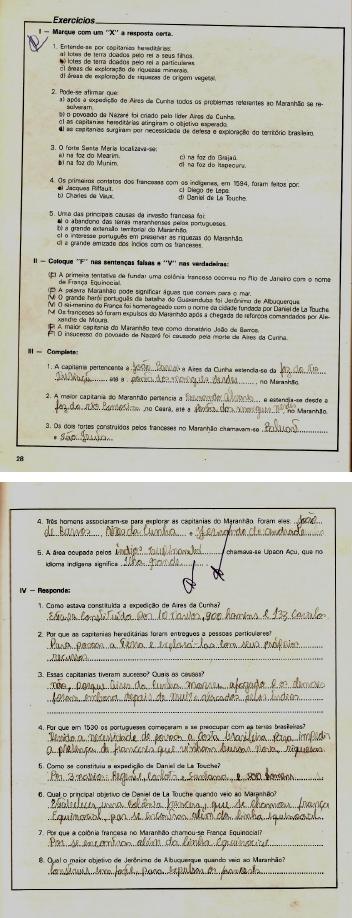 Exercícios
I — Marque com um "X" a resposta certa.
1. Entende-se por capitanias hereditárias:
a) lotes de terra doados pelo rei a seus filhos.
b) lotes de terra doados pelo rei a particulares
c) áreas de exploração de riquezas minerais.
d) áreas de exploração de riquezas de origem vegetal.
2. Pode-se afirmar que:
a) após a expedição de Aires da Cunha todos os problemas referentes ao Maranhão se re-
solveram.
b) o povoado de Nazaré foi criado pelo líder Aires da Cunha.
c) as capitanias hereditárias atingiram o objetivo esperado.
d) as capitanias surgiram por necessidade de defesa e exploração do território brasileiro.
3. O forte Santa Maria localizava-se:
a) na foz do Mearim.
c) na foz do Grajaú.
b) na foz do Munim.
d) na foz do Itapecuru.
4. Os primeiros contatos dos franceses com os indígenas, em 1594, foram feitos por:
a) Jacques Riffault.
c) Diego de Lepe.
b) Charles de Vaux.
d) Daniel de La Touche.
5. Uma das principais causas da invasão francesa foi:
a) o abandono das terras maranhenses pelos portugueses.
b) a grande extensão territorial do Maranhão.
c) o interesse português em preservar as riquezas do Maranhão.
d) a grande amizade dos índios com os franceses.
II — Coloque "F" nas sentenças falsas e "V" nas verdadeiras:
A primeira tentativa de fundar uma colônia francesa ocorreu no Rio de Janeiro com o nome
de França Equinocial.
A palavra Maranhão pode significar águas que correm para o mar.
O grande herói português da batalha de Guaxenduba foi Jerônimo de Albuquerque.
O rei-menino da França foi homenageado com o nome da cidade fundada por Daniel de La Touche
Os franceses só foram expulsos do Maranhão após a chegada de reforços comandados por Ale-
xandre de Moura.
A maior capitania do Maranhão teve como donatário João de Barros.
O insucesso do povoado de Nazaré foi causado pela morte de Aires da Cunha.
III — Complete:
1. A capitania pertencente a João Barros e Aires da Cunha estendia-se da foz do Rio
até a ponta dos mangues verdes, no Maranhão.
2. A maior capitania do Maranhão pertencia a Fernando Alvares, e estendia-se desde a
foz do rio, no Ceará, até a Ponta dos mangues verdes, no Maranhão.
3. Os dois fortes construídos pelos franceses no Maranhão chamavam-se
e São
28
4. Três homens associaram-se para explorar as capitanias do Maranhão. Foram eles: João
de Barros, Aires da Cunha e Fernando de andrade
5. A área ocupada pelos índios tupinambás chamava-se Upaon Açu, que no
idioma indígena significa Ilha grande
IV — Responda:
1. Como estava constituída a expedição de Aires da Cunha?
Estava constituída por 10 navios, 900 homens e 133 cavalos
2. Por que as capitanias hereditárias foram entregues a pessoas particulares?
Para povoar a terra e explorá-las com seus próprios
recursos
3. Essas capitanias tiveram sucesso? Quais as causas?
não, porque Aires da Cunha morreu afogado e os demais
foram embora depois de muito atacados pelos índios
4. Por que em 1530 os portugueses começaram a se preocupar com as terras brasileiras?
Devido a necessidade de povoar a costa brasileira para impedir
a presença de franceses que vinham buscar nova riquezas
5. Como se constituía a expedição de Daniel de La Touche?
Por 3 navios: Regente, Carlota e Santana, e 500 homens
6. Qual o principal objetivo de Daniel de La Touche quando veio ao Maranhão?
Estabelecer uma colônia francesa, que se chamou frança
Equinocial, por se encontrar além da linha equinocial
7. Por que a colônia francesa no Maranhão chamou-se França Equinocial?
Por se encontrar além da linha equinocial
8. Qual o maior objetivo de Jerônimo de Albuquerque quando veio ao Maranhão?
Construir um forte, para expulsar os franceses